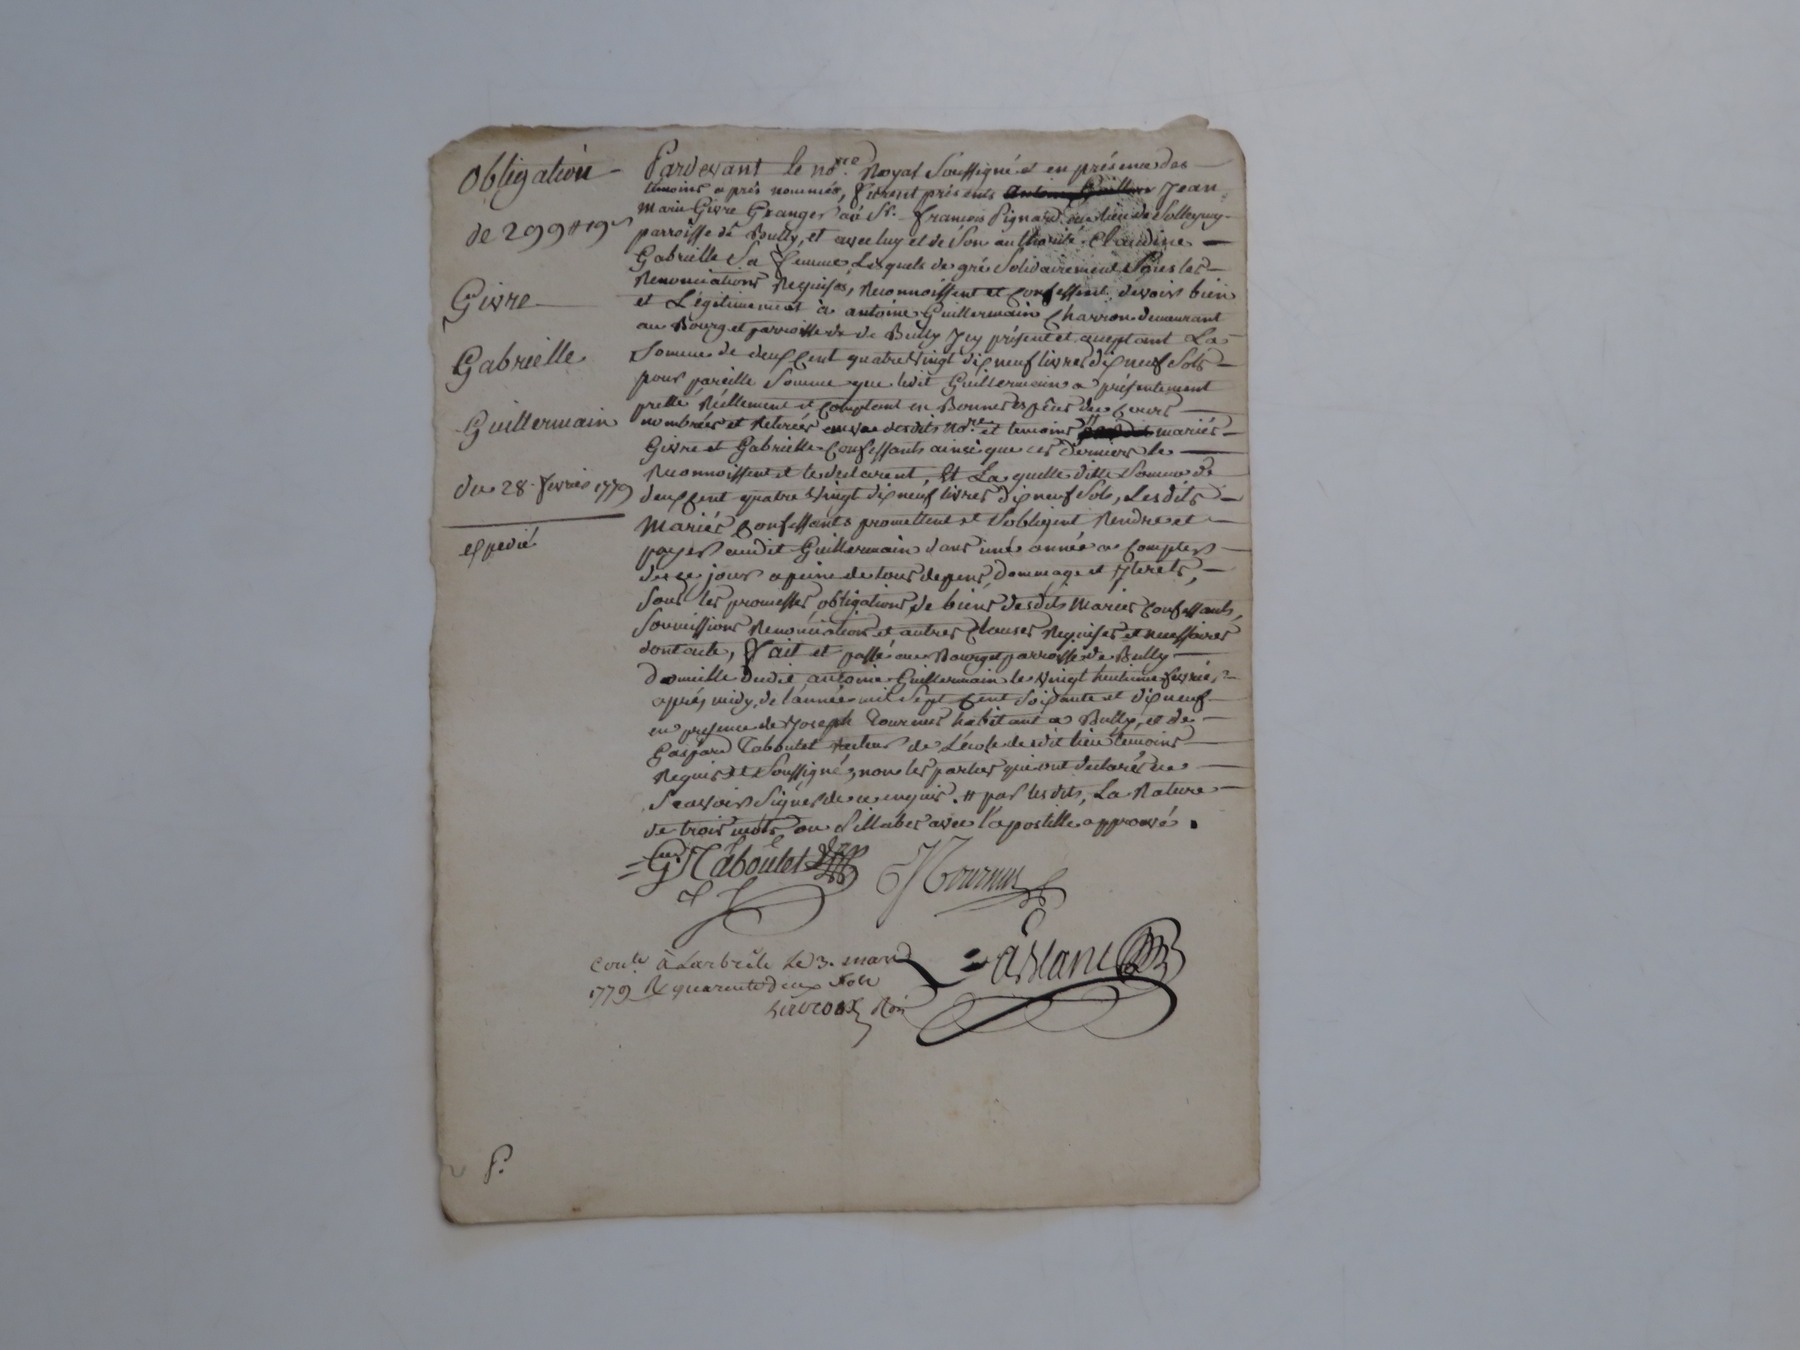 Obligation
de 299# 19s
Givre
Gabrielle
Guillermain
du 28 fevrier 1779
expedié
Pardevant le nore. Royal Soussigné et en présence des
témoins après nommés, furent présents Jean
Marie Givre Granger du Sr. françois Pignard au lieu de
parroisse de Bully, et avec luy et de Son authorité Claudine
Gabrielle Sa femme Lesquels de gré Solidairement Sous les
Renonciations Requises, Reconnoissent et Confessent devoir bien
et Légitimement à antoine Guillermain Charron demeurant
au Bourg et parroisse de Bully Icy présent et acceptant La
Somme de deux Cent quatre Vingt dix neuf livres dix neuf Sols
pour pareille Somme que ledit Guillermain a présentement
presté Réellement et Comptant en Bonnes espèces de Cours
nombrées et Retirées en vue desdits nore et temoins # mariés
Givre et Gabrielle Confessants ainsi que ces derniers le
Reconnoissent et le declarent, Et La quelle ditte Somme de
deux Cent quatre Vingt dix neuf livres dix neuf Sols, Les dits
Mariés Confessants promettent et Sobligent Rendre et
payer audit Guillermain dans une année a Compter
de ce jour a peine de tous depens, dommage et Iterets,
Sous les promesses, obligations de biens desdits Mariés Confessants,
Soumissions Renonciations et autres Clauses Requises et necessaires
dont acte, Fait et passé au Bourg et parroisse de Bully
domicille dudit antoine Guillermain le Vingt huitieme fevrier
après midy, de l'année mil Sept Cent Soixante et dix neuf
en presence de Joseph Tournus habitant a Bully, et de
Gaspard Taboulet Recteur de L'école dudit lieu temoins
Requis et Soussignés non les parties qui ont declarés ne
Scavoir Signer de ce enquis. # par lesdits, La Rature
de trois mots ou Sillabes avec l'apostille approuvé.
G. Taboulet
J Tournus
Conlé à Larbrêle le 3. mars
1779 R quarente deux Sols